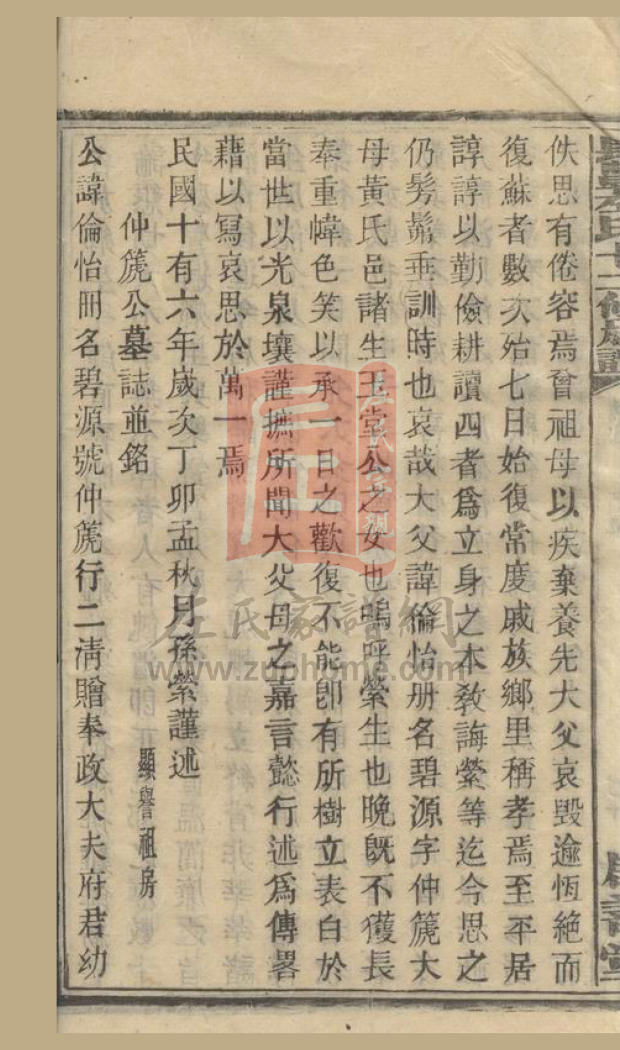 佚思有倦容焉曾祖母以疾棄養先大父哀毀逾恆絶而
復蘇者數次殆七日始復常度戚族鄉里稱孝焉至平居
諄諄以勤儉耕讀四者爲立身之本敎誨縈等迄今思之
仍髣髴垂訓時也哀哉大父諱倫怡册名碧源字仲篪大
母黃氏邑諸生玉堂公之女也嗚呼縈生也晚旣不獲長
奉重幃色笑以承一日之歡復不能卽有所樹立表白於
當世以光泉壤謹撫所聞大父母之嘉言懿行述爲傳畧
藉以寫哀思於萬一焉
民國十有六年歲次丁卯孟秋月孫縈謹述
仲篪公墓誌並銘
顯譽祖房
公諱倫怡册名碧源號仲篪行二淸贈奉政大夫府君幼
左氏家譜網
www.zuohome.com